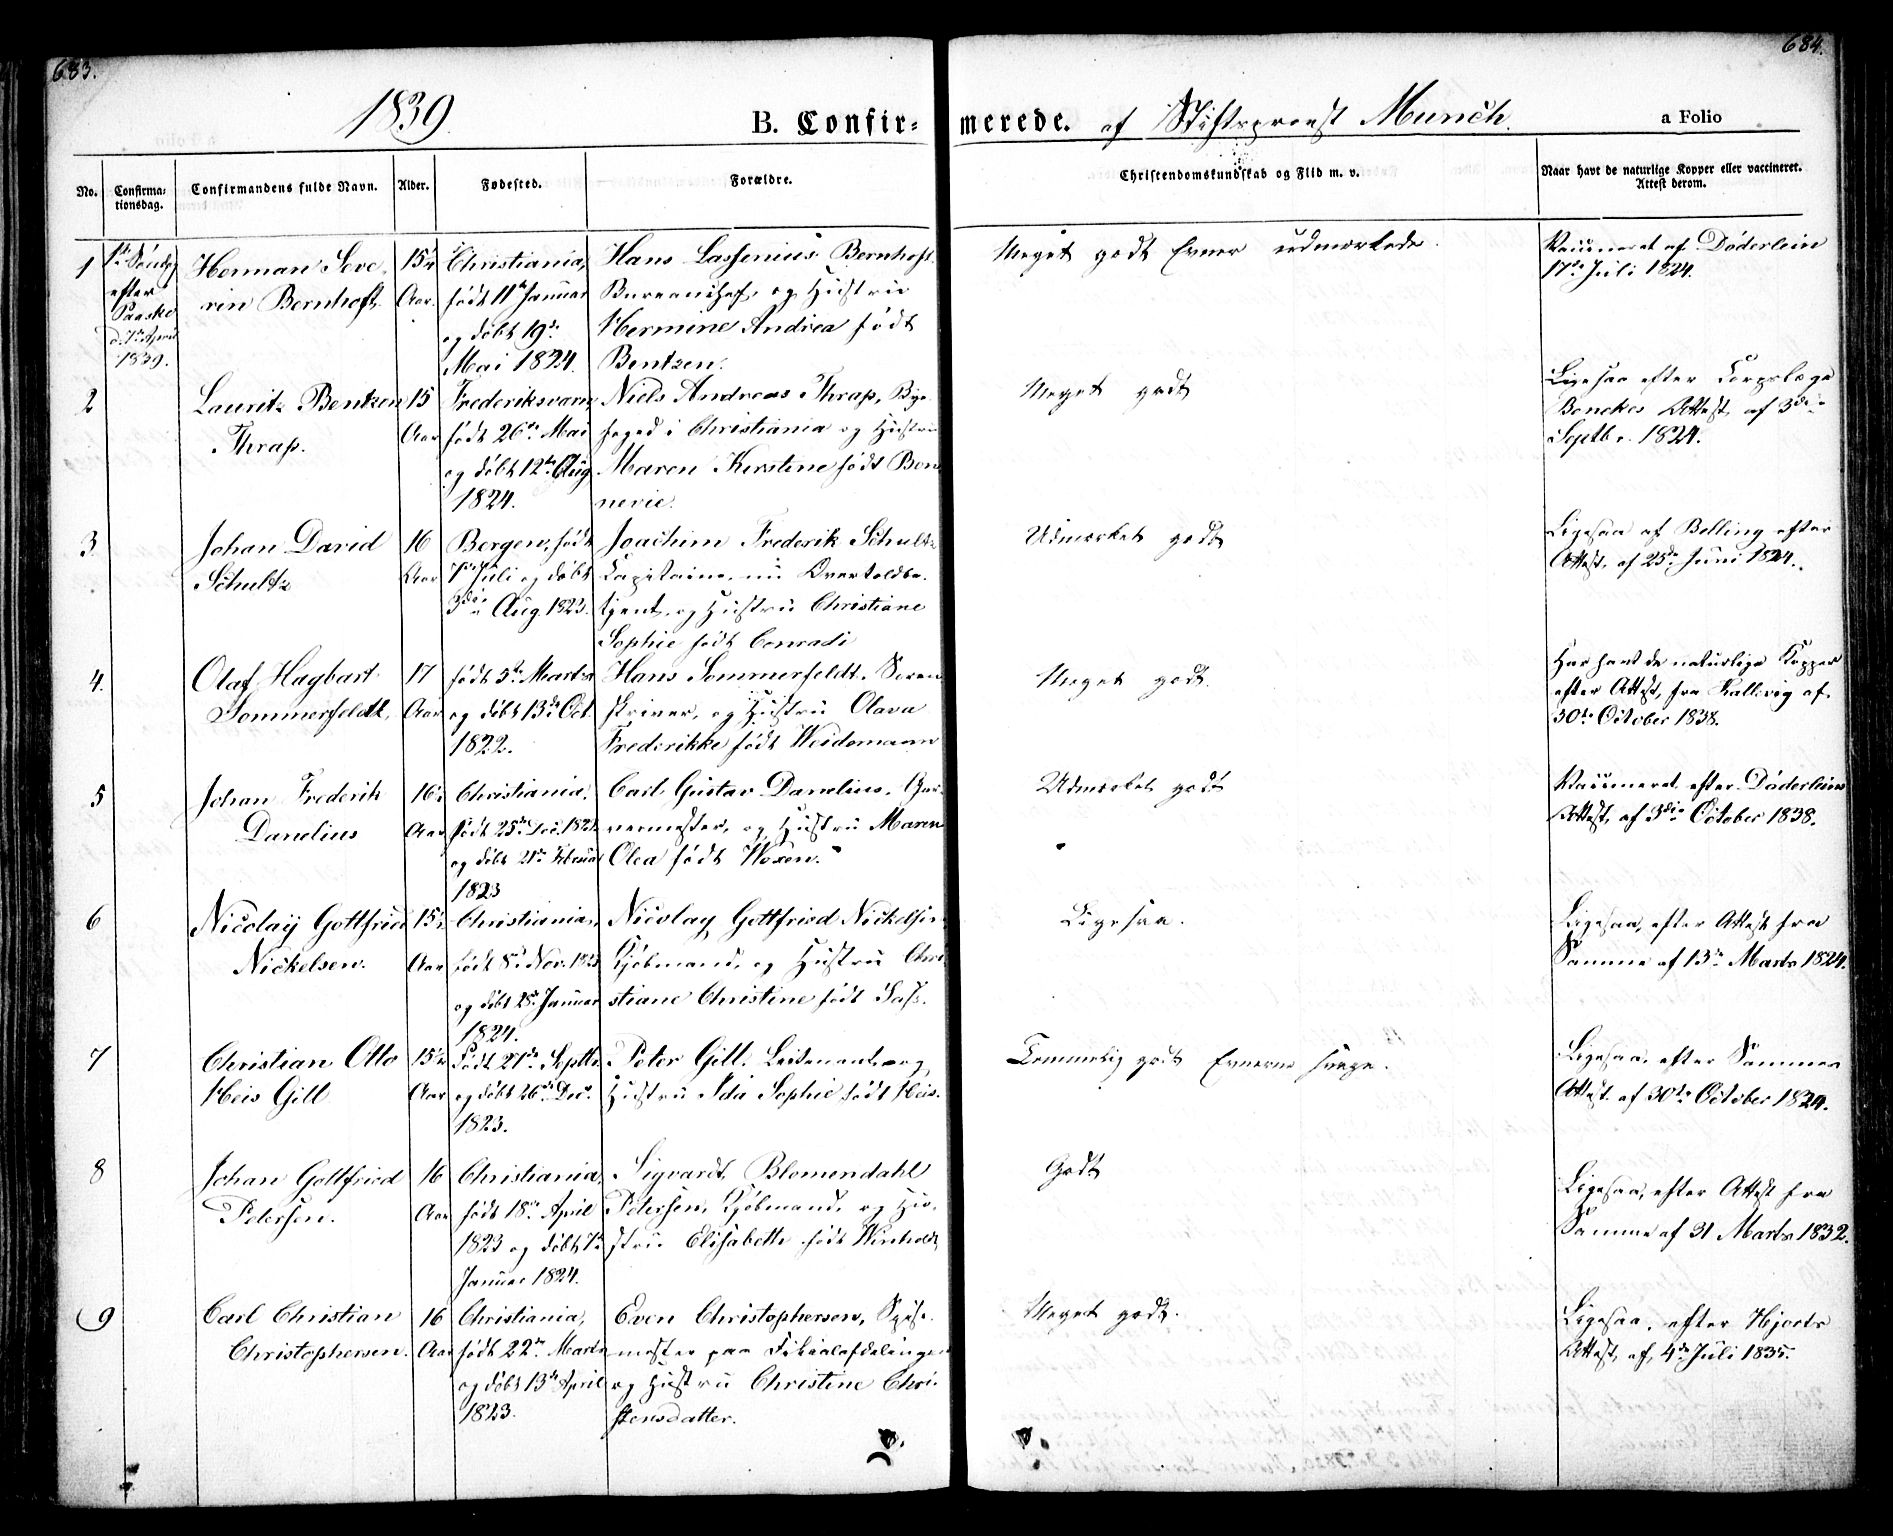 683.
684.
1839.
B. Confir-
merede. af Stiftsprovst Munch.
a Folio
No.
Confirma-
tionsdag.
Confirmandens fulde Navn.
Alder.
Fødested.
Forældre.
Christendomskundskab og Flid m. v.
Naar havt de naturlige Kopper eller vaccineret.
Attest derom.
1
efter
Paaske
d. 7de April
1839.
Herman Seve-
rin Bernhoft.
15
Aar.
Christiania,
født 11te Januar
og døbt 19de
Mai 1824.
Hans Lassenius Bernhoft
Bureauchef, og Hustrue
Hermine Andrea født
Bentzen.
Meget godt Evner udmærkede.
Vaccineret af Døderlein
17de Juli 1824.
2
Lauritz Bentzen
Thrap.
15
Aar
Frederiksværn,
født 26de Mai
og døbt 12te Aug
1824.
Niels Andreas Thrap, Bye-
foged i Christiania og Hustru
Maren Kirstine født Bon-
nevie.
Meget godt
Ligesaa efter Corpslæge
Bonekes Attest af 3die
Septbr. 1824.
3
Johan David
Schultz
16
Aar
Bergen, født
7de Juli og døbt
3die Aug 1823.
Joachim Frederik Schultz
Capitaine, nu Overtoldbe-
tjent, og Hustru Christiane
Sophie født Conradi
Udmærket godt
Ligesaa af Bolling efter
Attest, af 25de Juni 1824.
4.
Olaf Hagbart
Sommerfeldt,
17
Aar
født 5te Marts
og døbt 13de Oct.
1822.
Hans Sommerfeldt, Soren-
skriver, og Hustru Olava
Frederikke født Weidemann
Meget godt.
Har havt de naturlige Kopper
efter Attest, fra Kallevig af
30te October 1838.
5
Johan Frederik
Danelius
16
Aar
Christiania,
født 25de Dec. 1822
og døbt 21de Februar
1823
Carl Gustav Danelius, Gar-
vermester, og Hustru Maren
Olea født Woxen.
Udmærket godt
Vaccineret efter Døderleins
Attest, af 3die October 1838.
6
Nicolay Gottfried
Nickelsen.
15
Aar
Christiania,
født 8de Nov. 1823
og døbt 28de Januar
1824.
Nicolay Gottfried Nickelsen
Kjøbmand, og Hustru Chri-
stiane Christine født Sass.
Ligesaa.
Ligesaa, efter Attest fra
Samme af 13de Marts 1824.
7
Christian Otto
Heis Gill
15
Aar
Født 27de Septbr.
og døbt 26de Dec.
1823.
Peter Gill. Leitenant og
Hustru Ida Sophie født Heis.
Temmelig godt Evnerne svage.
Ligesaa, efter Sammes
Attest af 30te October 1824.
8
Johan Gottfried
Petersen.
16
Aar
Christiania,
født 18de April
1823 og døbt 1te
Januar 1824.
Sigvardt Blomendahl
Petersen, Kjøbmand, og Hu-
stru Elisabeth født
Godt
Ligesaa, efter Attest fra
Samme af 31 Marts 1832.
9
Carl Christian
Christophersen.
16
Aar
Christiania,
født 22de Marts
og døbt 13de April
1823.
Even Christophersen, Spise-
mester paa Filialafdelingen
og Hustru Christine Chri-
stensdatter.
Meget godt.
Ligesaa, efter Hjorts
Attest, af 4de Juli 1835.